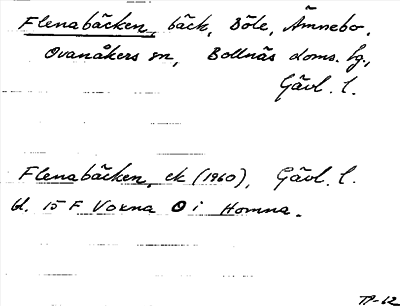 Flenabäcken, bäck, Böle, Ämnebo,
Ovanåkers sn, Bollnäs doms. hg.,
Gävl. l.
Flenabäcken, ek (1960), Gävl. l.
bl. 15 F Voxna O i Homna.
TP-62